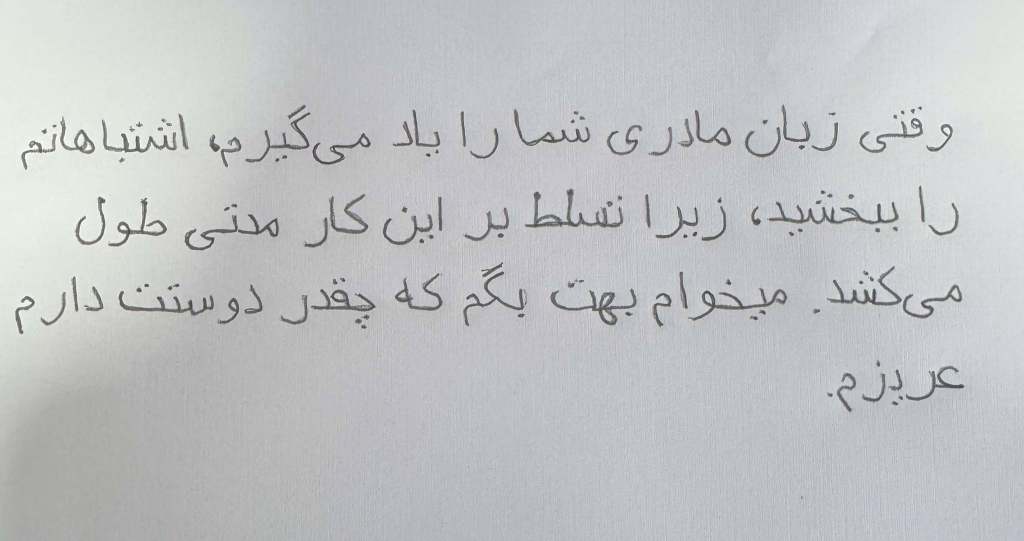 وقتی زبان مادری شما را یاد می‌گیرم، اشتباهاتم
را ببخشید، زیرا تسلط بر این کار مدتی طول
می‌کشد. میخوام بهت بگم که چقدر دوستت دارم
عریزم.